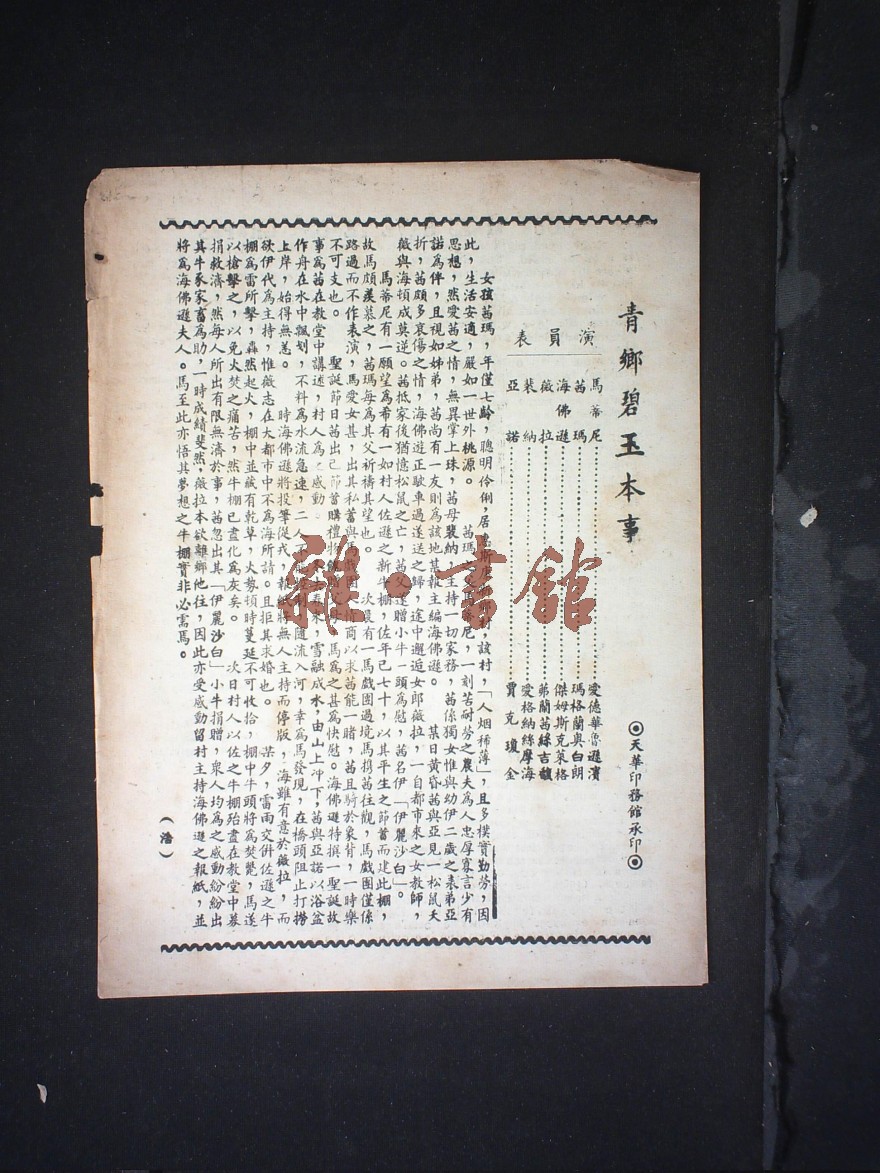 青鄉碧玉本事
◎天華印務館承印◎
演員表
馬蒂尼……愛德華魯遜濱
茜瑪……瑪格蘭奧白朗
海佛遜……傑姆斯克萊格
薇拉……弗蘭茜絲吉馥
裴納……愛格納絲摩海
亞諾……賈克瓊金
女孩茜瑪，年僅七齡，聰明伶俐，居惠斯 村，該村，「人烟稀薄」，且多樸實勤勞，因
此，生活安適，嚴如一世外桃源。 茜瑪 父馬蒂尼，一刻苦耐勞之農夫為人忠厚寡言少有
思想，然愛茜之情，無異掌上珠，茜母裴納 主持一切家務，茜係獨女惟與幼伊二歲之表弟亞
諾為伴，且視如姊弟，茜尚有一友則為該地某報主編海佛遜。 某日黃昏茜與亞見一松鼠夭
折，茜頗多哀傷之情，海佛遜正駛車過遂送之歸，途中邂逅女郎薇拉，一自都市來之女教師，
薇與海頓成莫逆。茜抵家後猶憶松鼠之亡，茜父遂贈小牛一頭為慰，茜名伊「伊麗沙白」。
馬蒂尼有一願望為希有一如村人佐遜之新牛棚，佐年已七十，以其平生之節蓄而建此棚，
故馬頗羨慕之，茜瑪每為其父祈禱其望也。 次晨有一馬戲團過境馬携茜往觀，馬戲團僅係
路過而不作表演，馬愛女甚，出其私蓄與馬 團 情商以求茜能一睹，茜且騎於象背，一時樂
不可支也。 聖誕節日茜出己節蓄購禮物 父母 馬為之甚為快慰。海佛遜特撰一聖誕故
事為茜在教堂中講述，村人為之感動。 春來，雪融成水，由山上沖下，茜與亞諾以浴盆
作舟在水中飄划，不料為水流急速，二人不 隨流入河，幸為馬發現，在橋頭阻止打撈
上岸，始得無恙。 時海佛遜將投筆從戎，報紙將無人主持而停版，海雖有意於薇拉，而
欲伊代為主持，惟薇志在大都市中不為海所請。且拒其求婚也。 某夕，雷雨交併佐遜之牛
棚為雷所擊，轟然起火，棚中並藏有乾草，火勢頓時蔓延不可收拾，棚中牛頭將為焚斃，馬遂
以槍擊之，以免火焚之痛苦，然牛棚已盡化為灰矣。 次日村人以佐之牛棚殆盡在教堂中募
捐救濟，然每人所出有限無濟於事，茜忽出其「伊麗沙白」小牛捐贈，衆人均為之感動紛紛出
其牛豕家畜為助，一時成績斐然，薇拉本欲離鄉他往，因此亦受感動留村主持海佛遜之報紙，並
將為海佛遜夫人。馬至此亦悟其夢想之牛棚實非必需焉。
（浩）
雜·書館